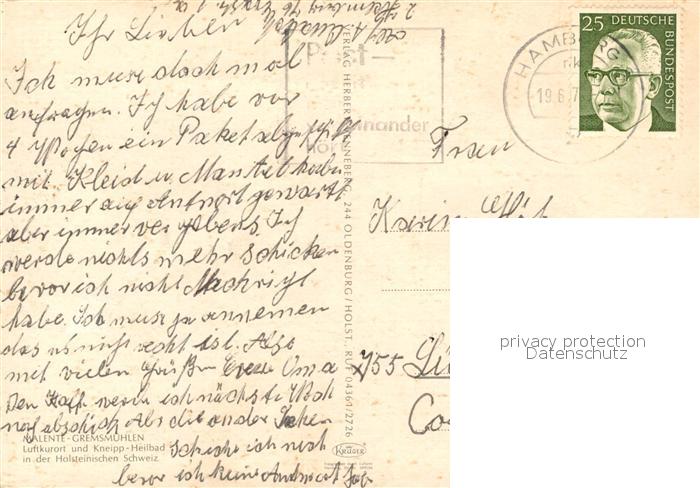 Ihr Lieben
Ich muss doch mal
anfragen. Ich habe vor
4 Wochen ein Paket abgeschickt
mit Kleid u. Mantel habe
immer auf Antwort gewartt
aber immer vergebens Ich
werde nichts mehr schicken
bevor ich nicht Nachricht
habe. Ich muss ja annemen
das es nicht recht ist. Also
mit vielen Grüßen Eure Oma
Den Kaff werde ich nächste Woch
noch abschick Als die ander Sachen
Schicke ich nich
bevor ich keine Antwort hab
MALENTE-GREMSMÜHLEN
Luftkurort und Kneipp-Heilbad
in der Holsteinischen Schweiz
VERLAG HERBERT DANNEBERG, 244 OLDENBURG/HOLST. RUF 04361/2726
KRÜGER
HAMBURG
19.6.7
25 DEUTSCHE
BUNDESPOST
Frau
Karin
755
privacy protection
Datenschutz